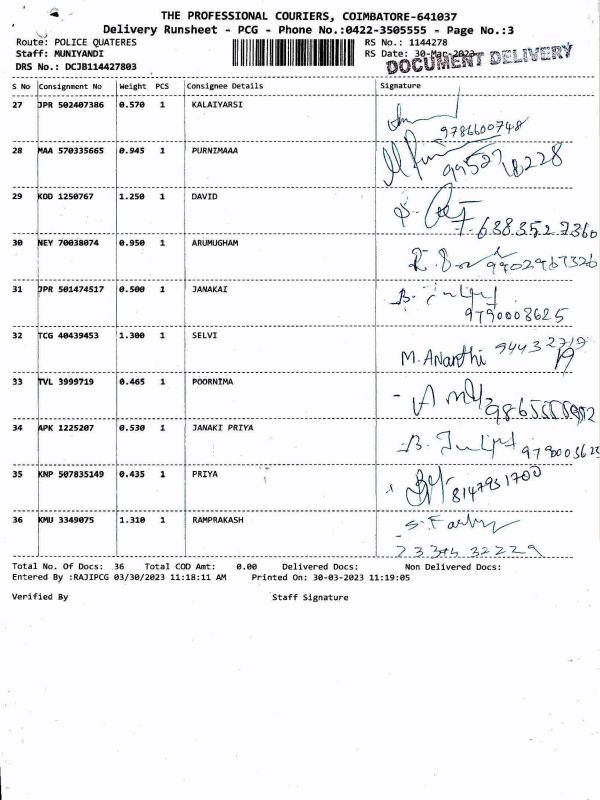 THE PROFESSIONAL COURIERS, COIMBATORE-641037
Delivery Runsheet - PCG - Phone No.:0422-3505555 - Page No.:3
Route: POLICE QUATERES RS No.: 1144278
Staff: MUNIYANDI RS Date: 30-Mar-2023
DOCUMENT DELIVERY
DRS No.: DCJB114427803
S No Consignment No Weight PCS Consignee Details Signature
27 JPR 502407386 0.570 1 KALAIYARSI
9786600748
28 MAA 570335665 0.945 1 PURNIMAAA
29 KOD 1250767 1.250 1 DAVID
6383527360
30 NEY 70038074 0.950 1 ARUMUGHAM
9902967326
31 JPR 501474517 0.500 1 JANAKAI
9790003625
32 TCG 40439453 1.300 1 SELVI
M. Ananthi
33 TVL 3999719 0.465 1 POORNIMA
34 APK 1225207 0.530 1 JANAKI PRIYA
35 KNP 507835149 0.435 1 PRIYA
8147931700
36 KMU 3349075 1.310 1 RAMPRAKASH
Total No. Of Docs: 36 Total COD Amt: 0.00 Delivered Docs: Non Delivered Docs:
Entered By :RAJIPCG 03/30/2023 11:18:11 AM Printed On: 30-03-2023 11:19:05
Verified By Staff Signature